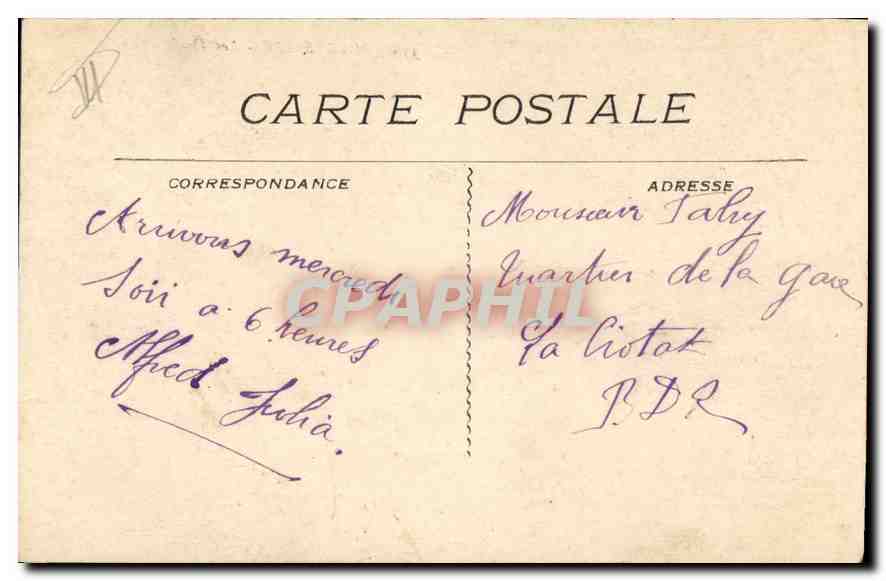 CARTE POSTALE
CORRESPONDANCE
Arrivons mercredi
Soir a 6 heures
Alfred Julia.
ADRESSE
Monsieur
Quartier de la gare
La Ciotat
B D R
CPAPHIL